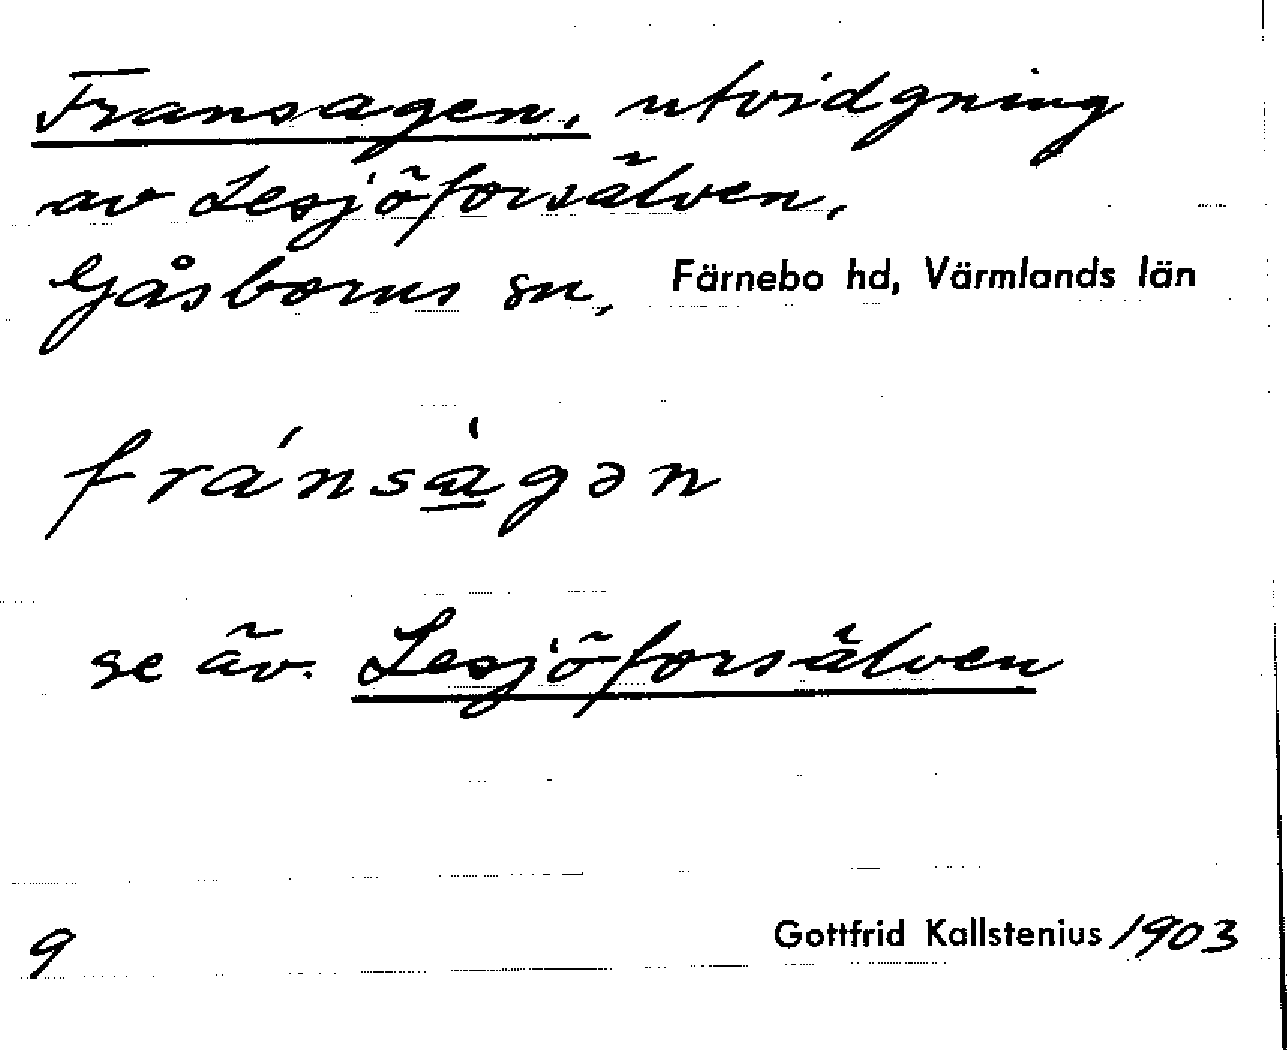 Fransagen, utvidgning
av Lesjöforsälven,
Gåsborns sn, Färnebo hd, Värmlands län
fránsà̲gən
se äv. Lesjöforsälven
9 Gottfrid Kallstenius 1903